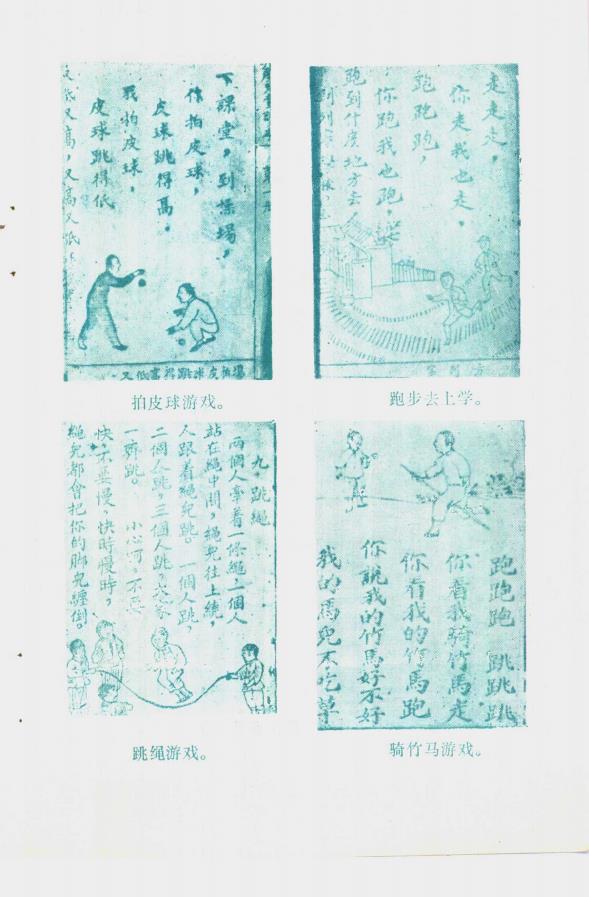 下課堂，到操場，
你拍皮球，
皮球跳得高。
我拍皮球，
皮球跳得低
低又高，又高又低
拍皮球游戏。
走走走，
你走我也走。
跑跑跑，
你跑我也跑，
跑到什麽地方去
跑步去上学。
九，跳繩
兩個人拿着一條繩，一個人
站在繩中間，繩兒往上繞，
人跟着繩兒跳。一個人跳，
二個人跳，三個人跳，大家
一齊跳。小心呵，不要
快，不要慢，快時慢時，
繩兒都會把你的脚兒纏倒。
跳绳游戏。
跑跑跑 跳跳跳
你看我騎竹馬走
你看我的竹馬跑
你說我的竹馬好不好
我的馬兒不吃草
骑竹马游戏。